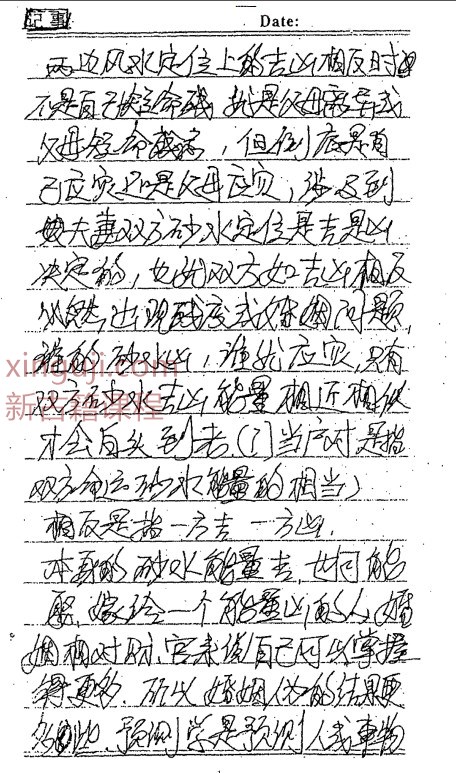 记事
Date:
两边风水定位上的吉凶相反时
不是自己短命残 就是父母离异或
父母短命残病，但到底是自
己应灾还是父母应灾，涉及到
夫妻双方砂水定位是吉是凶
决定的，也就双方如吉凶相反
必然出现残疾或婚姻问题，
谁的砂水凶，谁就应灾，只有
双方砂水吉凶能量相近相似
才会白头到老。(门当户对是指
双方命运砂水能量的相当)
相反是指一方吉一方凶．
本身的砂水能量吉，如何能
娶、嫁给一个能量凶的人，婚
姻相对财、官来说自己可以掌握
得更多．所以婚姻人为的结果更
预测学是预测人或事物
xinguji.com
新古籍课程